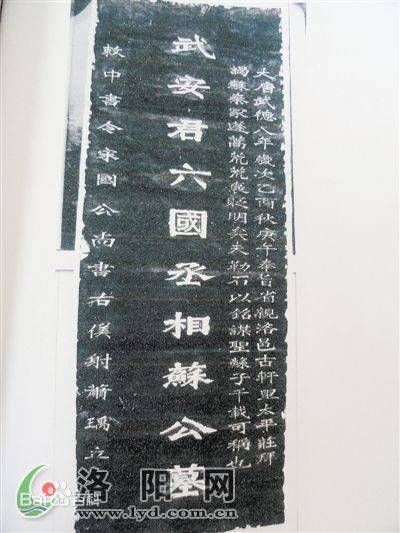 大唐武德八年歲次乙酉秋庚午奉旨省觀洛邑古軒里太平莊拜
謁蘇秦冢遂蒿荒荒褒貶明矣夫勒石以銘謀聖蘇子千載可稱也
武安君六國丞相蘇公墓
敕中書令宋國公尚書右僕射蕭瑀立
洛阳网
www.lyd.com.cn
Bai百科